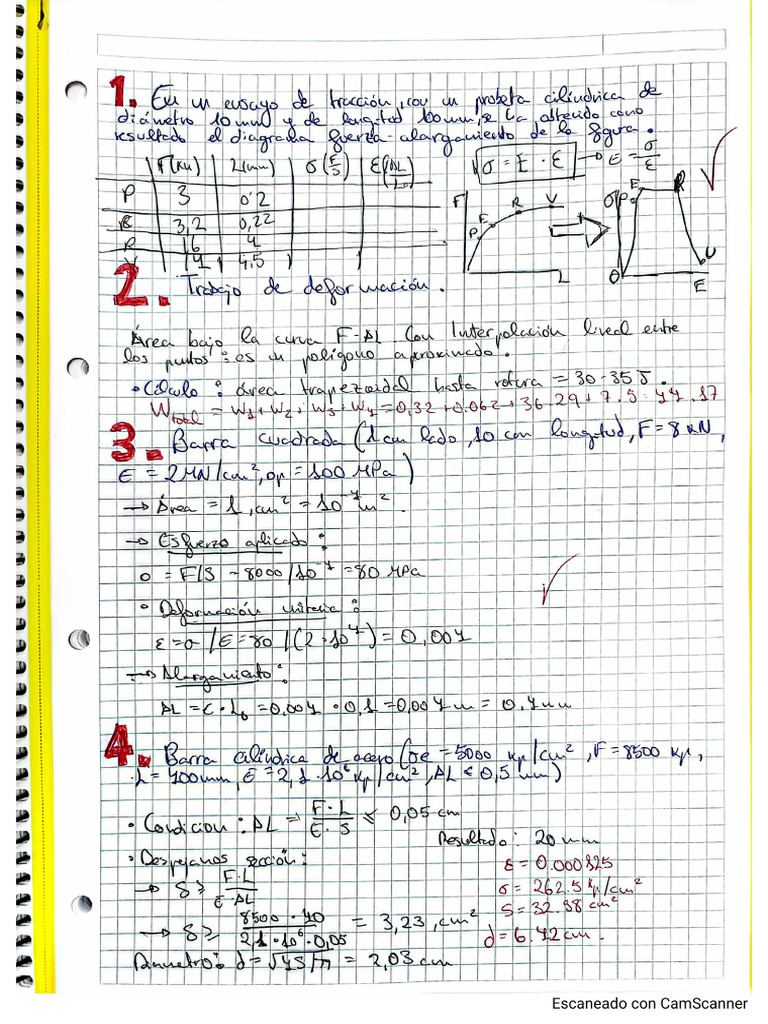 1. En un ensayo de tracción, con un probeta cilíndrica de
diámetro 10 mm y de longitud 100 mm, se ha obtenido como
resultado el diagrama fuerza-alargamiento de la figura.
F(KN) L(mm) σ(F/S) ε(ΔL/L₀)
P 3 0'2
E 3,2 0,22
R 16 4
V 14 4.5
σ = E · ε → E = σ/ε
F P E R V L
σ P E R U O ε
2. Trabajo de deformación.
Área bajo la curva F-ΔL. Con Interpolación lineal entre
los puntos: es un polígono aproximado.
• Cálculo: área trapezoidal hasta rotura = 30-35 J.
W total = W1 + W2 + W3 + W4 = 0,32 + 0.062 + 36.29 + 7.5 = 44.17
3. Barra cuadrada (1 cm lado, 10 cm longitud, F = 8 kN,
E = 2 MN/cm², σp = 100 MPa)
→ Área = 1, cm² = 10⁻⁴ m².
→ Esfuerzo aplicado:
σ = F/S = 8000/10⁻⁴ = 80 MPa
• Deformación unitaria:
ε = σ/E = 80/(2·10⁴) = 0,004
→ Alargamiento:
ΔL = ε · L₀ = 0,004 · 0,1 = 0,004 m = 0,4 mm
4. Barra cilíndrica de acero (σe = 5000 kp/cm², F = 8500 kp,
L = 400 mm, E = 2,1·10⁶ kp/cm², ΔL ≤ 0,5 mm)
• Condicion: ΔL = F·L/E·S ≤ 0,05 cm
Resultado: 20 mm
• Despejamos sección:
→ S ≥ F·L/E·ΔL
ε = 0.000125
σ = 262.5 kp/cm²
→ S ≥ 8500·40/2,1·10⁶·0,05 = 3,23, cm²
S = 32.38 cm²
d = 6.42 cm.
Diametro: d = √4S/π = 2,03 cm
Escaneado con CamScanner